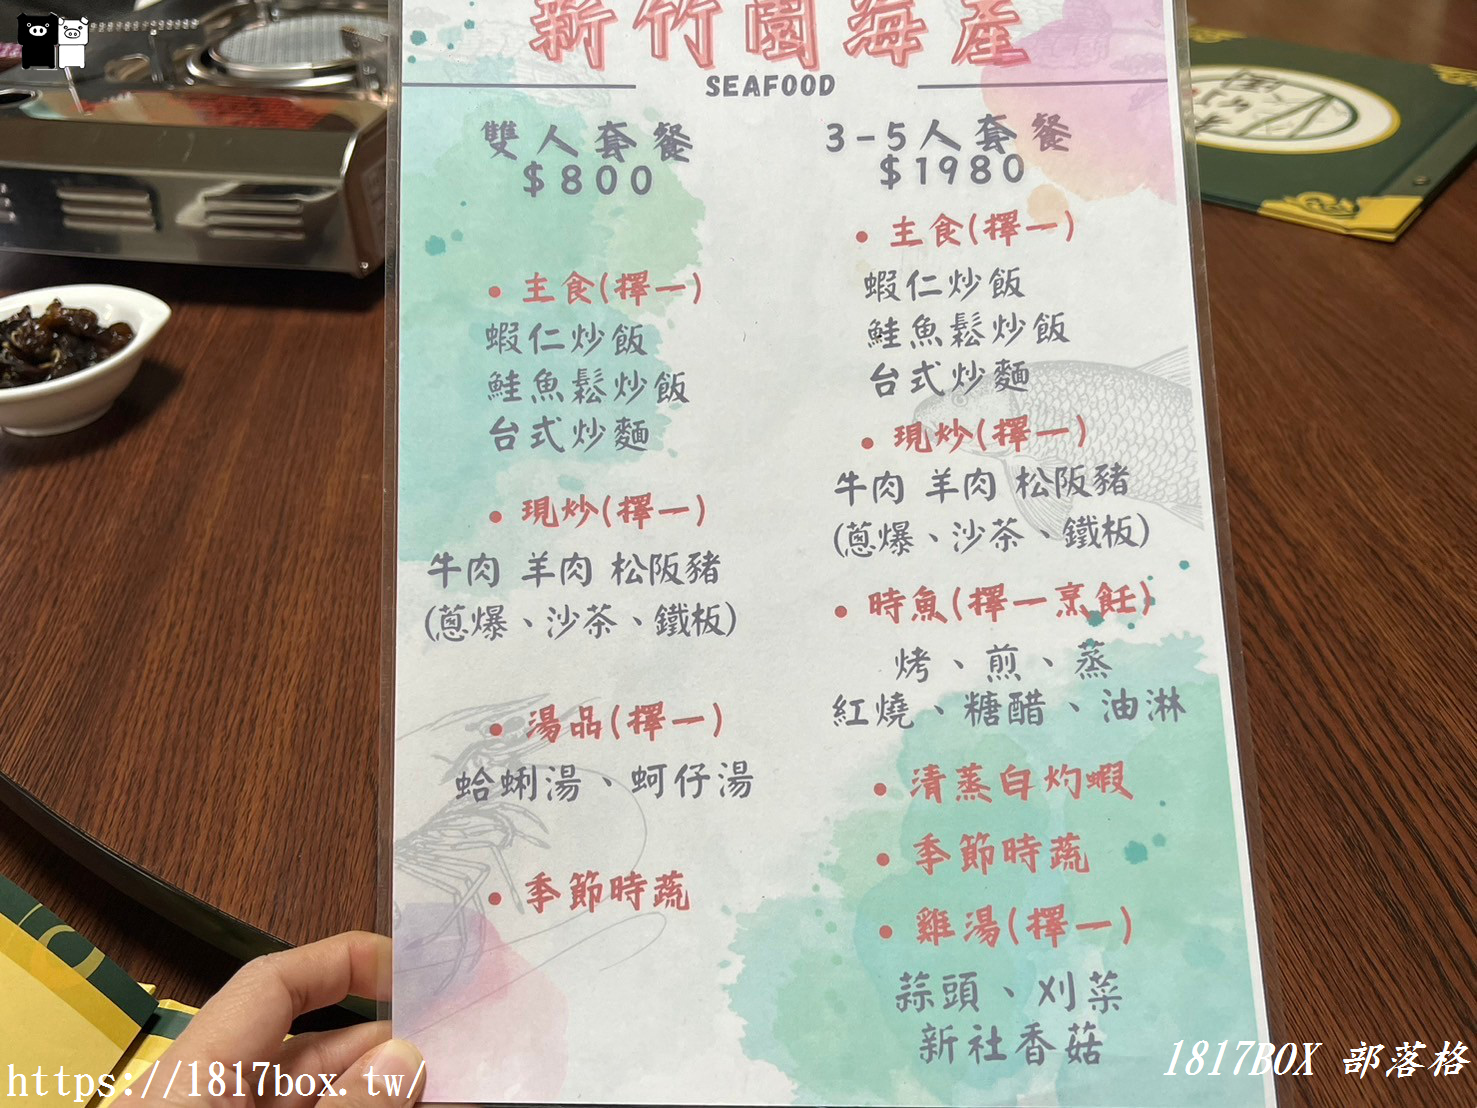 新竹園海產
SEAFOOD
雙人套餐
$800
主食(擇一)
蝦仁炒飯
鮭魚鬆炒飯
台式炒麵
現炒(擇一)
牛肉 羊肉 松阪豬
(蔥爆、沙茶、鐵板)
湯品(擇一)
蛤蜊湯、蚵仔湯
季節時蔬
3-5人套餐
$1980
主食(擇一)
蝦仁炒飯
鮭魚鬆炒飯
台式炒麵
現炒(擇一)
牛肉 羊肉 松阪豬
(蔥爆、沙茶、鐵板)
時魚(擇一烹飪)
烤、煎、蒸
紅燒、糖醋、油淋
清蒸白灼蝦
季節時蔬
雞湯(擇一)
蒜頭、刈菜
新社香菇
https://1817box.tw/
1817BOX 部落格